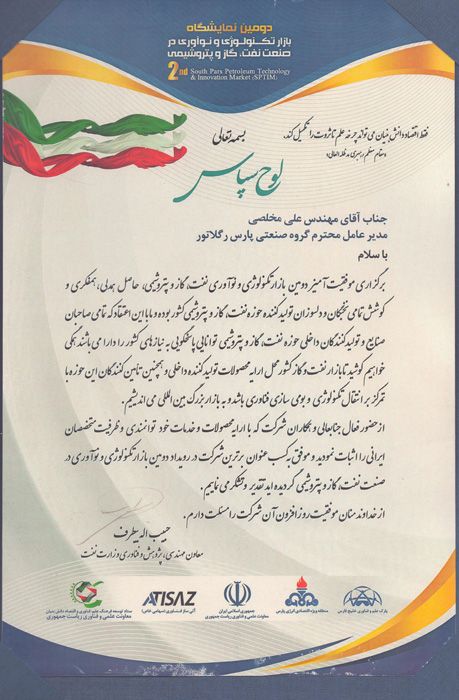 دومین نمایشگاه
بازار تکنولوژی و نوآوری در
صنعت نفت، گاز و پتروشیمی
2nd South Pars Petroleum Technology
& Innovation Market (SPTIM)
فقط اقتصاد دانش بنیان می تواند چرخه علم تا ثروت را تکمیل کند.
«مقام معظم رهبری مدظله العالی»
بسمه تعالی
لوح سپاس
جناب آقای مهندس علی مخلصی
مدیر عامل محترم گروه صنعتی پارس رگلاتور
با سلام
برگزاری موفقیت آمیز دومین بازار تکنولوژی و نوآوری نفت، گاز و پتروشیمی، حاصل همدلی، همفکری و
کوشش تمامی نخبگان و دلسوزان تولید کننده حوزه نفت، گاز و پتروشیمی کشور بوده و ما با این اعتقاد که تمامی صاحبان
صنایع و تولید کنندگان داخلی حوزه نفت، گاز و پتروشیمی توانایی پاسخگویی به نیازهای کشور را دارا می باشند همگی
خواهیم کوشید تا بازار نفت و گاز کشور محل ارایه محصولات تولید کننده داخلی و همچنین تامین کنندگان این حوزه با
تمرکز بر انتقال تکنولوژی و بومی سازی فناوری باشد و به بازار بزرگ بین المللی می اندیشیم.
از حضور فعال جنابعالی و همکاران شرکت که با ارایه محصولات و خدمات خود توانمندی و ظرفیت متخصصان
ایرانی را اثبات نمودید و موفق به کسب عنوان برترین شرکت در رویداد دومین بازار تکنولوژی و نوآوری در
صنعت نفت، گاز و پتروشیمی گردیده اید تقدیر و تشکر می نماییم.
از خداوند منان موفقیت روز افزون آن شرکت را مسئلت دارم.
حبیب اله بیطرف
معاون مهندسی، پژوهش و فناوری وزارت نفت
پارک علم و فناوری خلیج فارس
منطقه ویژه اقتصادی انرژی پارس
جمهوری اسلامی ایران
معاونت علمی و فناوری ریاست جمهوری
ATISAZ
آتی ساز فناوری (سهامی خاص)
ستاد توسعه فرهنگ علم، فناوری و اقتصاد دانش بنیان
معاونت علمی و فناوری ریاست جمهوری